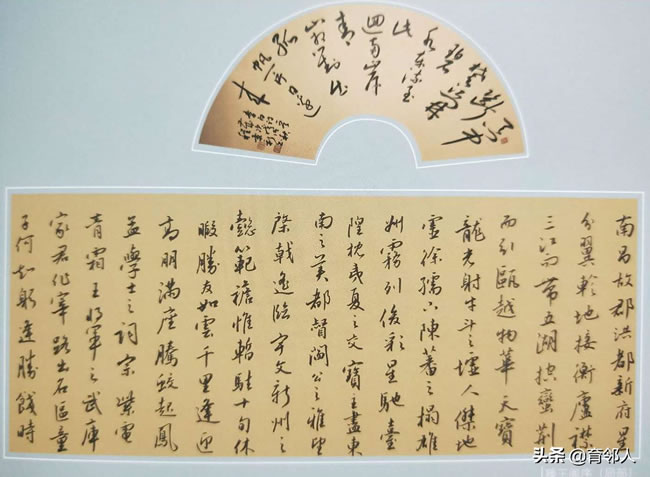 天門中
斷楚江
開碧
水東流至
此
迴兩岸
青
山相對出
孤
帆一片日邊
來
南昌故郡洪都新府星
分翼軫地接衡廬襟
三江而帶五湖控蠻荊
而引甌越物華天寶
龍光射牛斗之墟人傑地
靈徐孺下陳蕃之榻雄
州霧列俊彩星馳臺
隍枕夷夏之交賓主盡東
南之美都督閻公之雅望
棨戟遙臨宇文新州之
懿範襜帷暫駐十旬休
暇勝友如雲千里逢迎
高朋滿座騰蛟起鳳
孟學士之詞宗紫電
青霜王將軍之武庫
家君作宰路出名區童
子何知躬逢勝餞時
头条 @育邻人